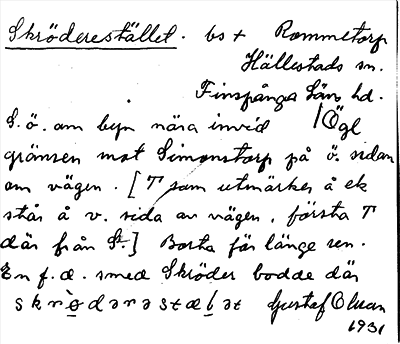 Skröderestället. bs + Rommetorp
Hällestads sn.
Finspånga Läns hd.
S.ö. om byn nära invid / Ögl
gränsen mot Simonstorp på ö. sidan
om vägen. [T som utmärker å ek
står å v. sida av vägen, första T
där från St.] Borta för länge sen.
En f.d. smed Skröder bodde där
Gustaf Olsson
1931